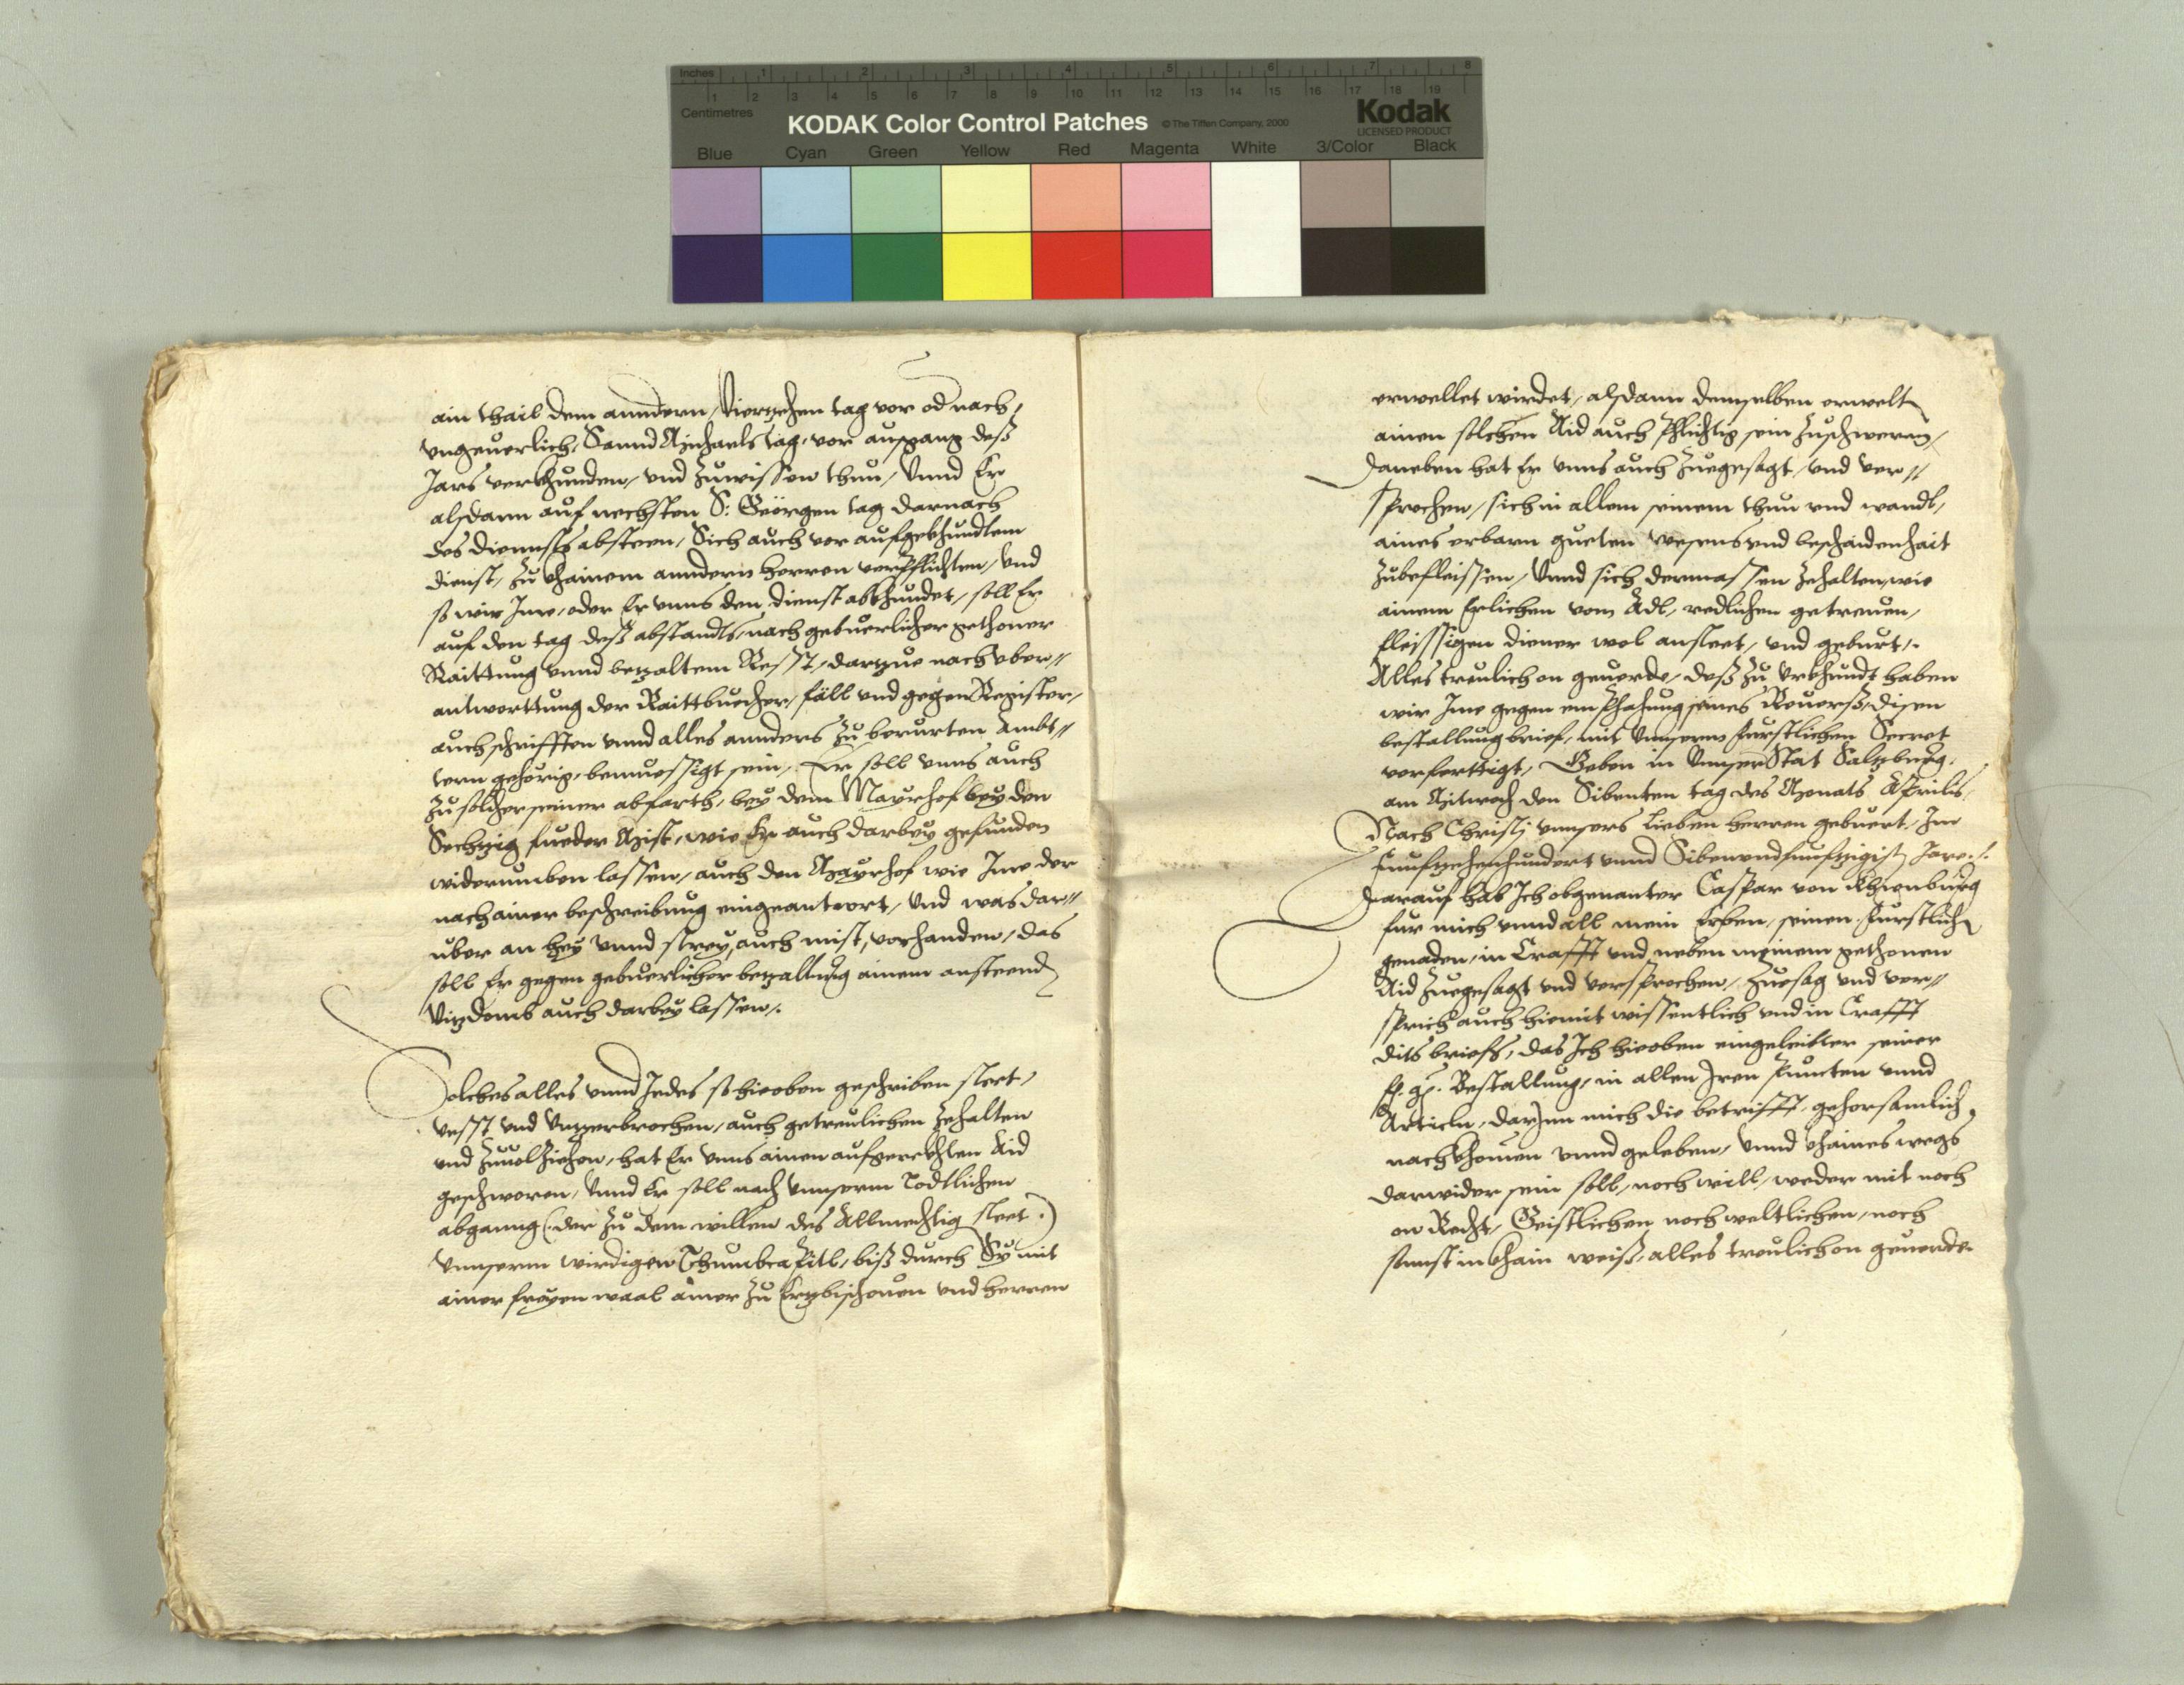 Inches 1 2 3 4 5 6 7 8
Centimetres 1 2 3 4 5 6 7 8 9 10 11 12 13 14 15 16 17 18 19
KODAK Color Control Patches © The Tiffen Company, 2000 Kodak
LICENSED PRODUCT
Blue Cyan Green Yellow Red Magenta White 3/Color Black
ain thail dem anndern, Viertzehen tag vor od nach,
vngeuerlich, Sannd Michaels tag, vor ausgang deß
Jars verkhunden, vnd zuwissen thun, Vnnd Er
alsdann auf nechsten S: Geörgen tag darnach
des diennsts absteen, Sich auch vor aufgekhundtem
dienst, zu khainem anndern herren verpflichten, vnd
so wir Ime, oder Er vnns den dienst abkhundet, soll Er
auf den tag deß abstandts, nach gebuerlicher gethoner
Raittung vnnd betzaltem Resst, dartzue nach vber//
antworttung der Raittbuecher, fäll vnd gegen Register,
auch schrifften vnnd alles annders zu berurten Ambt//
tern gehörig, bemuessigt sein, Er soll vnns auch
zu solcher seiner abfarth, bey dem Mayrhof bey den
Sechtzig fueder Mist, wie Er auch darbey gefunden
widerumben lassen, auch den Mayrhof wie Ime der
nach ainer beschreibung eingeantwort, Vnd was dar//
uber an hey vnnd strey, auch mist, vorhanden, das
soll Er gegen gebuerlicher betzallung ainem ansteend
Vitzdomb auch darbey lassen,.
Solches alles vnnd Jedes so hieoben geschriben steet,
vesst vnd vntzerbrochen, auch getreulichen zehalten
vnd zuuolziehen, hat Er vnns ainen aufgerekhten Aid
geschworen, Vnnd Er soll nach vnnserm Todtlichen
abganng (: der zu dem willen des Allmechtig steet :)
vnnserm wirdigen Thumbcapitl, biß durch Sy mit
ainer freyen waal ainer zu Ertzbischouen vnd herren
erwellet wirdet, alsdann demselben erwelt
ainen solchen Aid auch Phlichtig sein zuschweren,
daneben hat Er vnns auch zuegesagt, vnd ver//
sprochen, sich in allem seinem thun vnd wandl,
aines erbarn gueten wesens vnd beschaidenhait
zubefleissen, Vnnd sich dermassen zehalten, wie
ainem Erlichen vom Adl, redlichen getreuen,
fleissigen diener wol ansteet, vnd geburt,.
Alles treulich on geuerde, deß zu vrkhundt haben
wir Ime gegen emphahung seines Reuerß, disen
bestallung brief, mit vnnserm furstlichen Secret
verferttigt, Geben in vnnser Stat Saltzburg,
am Mitwoch den Sibenten tag des Monats Aprilis,
Nach Christi vnnsers lieben herren geburt, Im
funfftzehenhundert vnnd Sibenvndfunfftzigist Jare./.
Darauf hab Ich obgenanter Caspar von Khienburg
fur mich vnnd all mein Erben, seinen furstlich
genaden, in Crafft vnd neben meinem gethonen
Aid zuegesagt vnd versprochen, zuesag vnd ver//
sprich auch hiemit wissentlich vnd in Crafft
dits briefs, das Ich hieoben eingeleibter seiner
fl. g. Bestallung, in allen Iren Puncten vnnd
Articln, darinn mich die betrifft, gehorsamlich,
nachkhomen vnnd geleben, Vnnd khaines wegs
darwider sein soll, noch will, weder mit noch
on Recht, Geistlichen noch weltlichen, noch
sunst in khain weiß, alles treulich on geuerde.